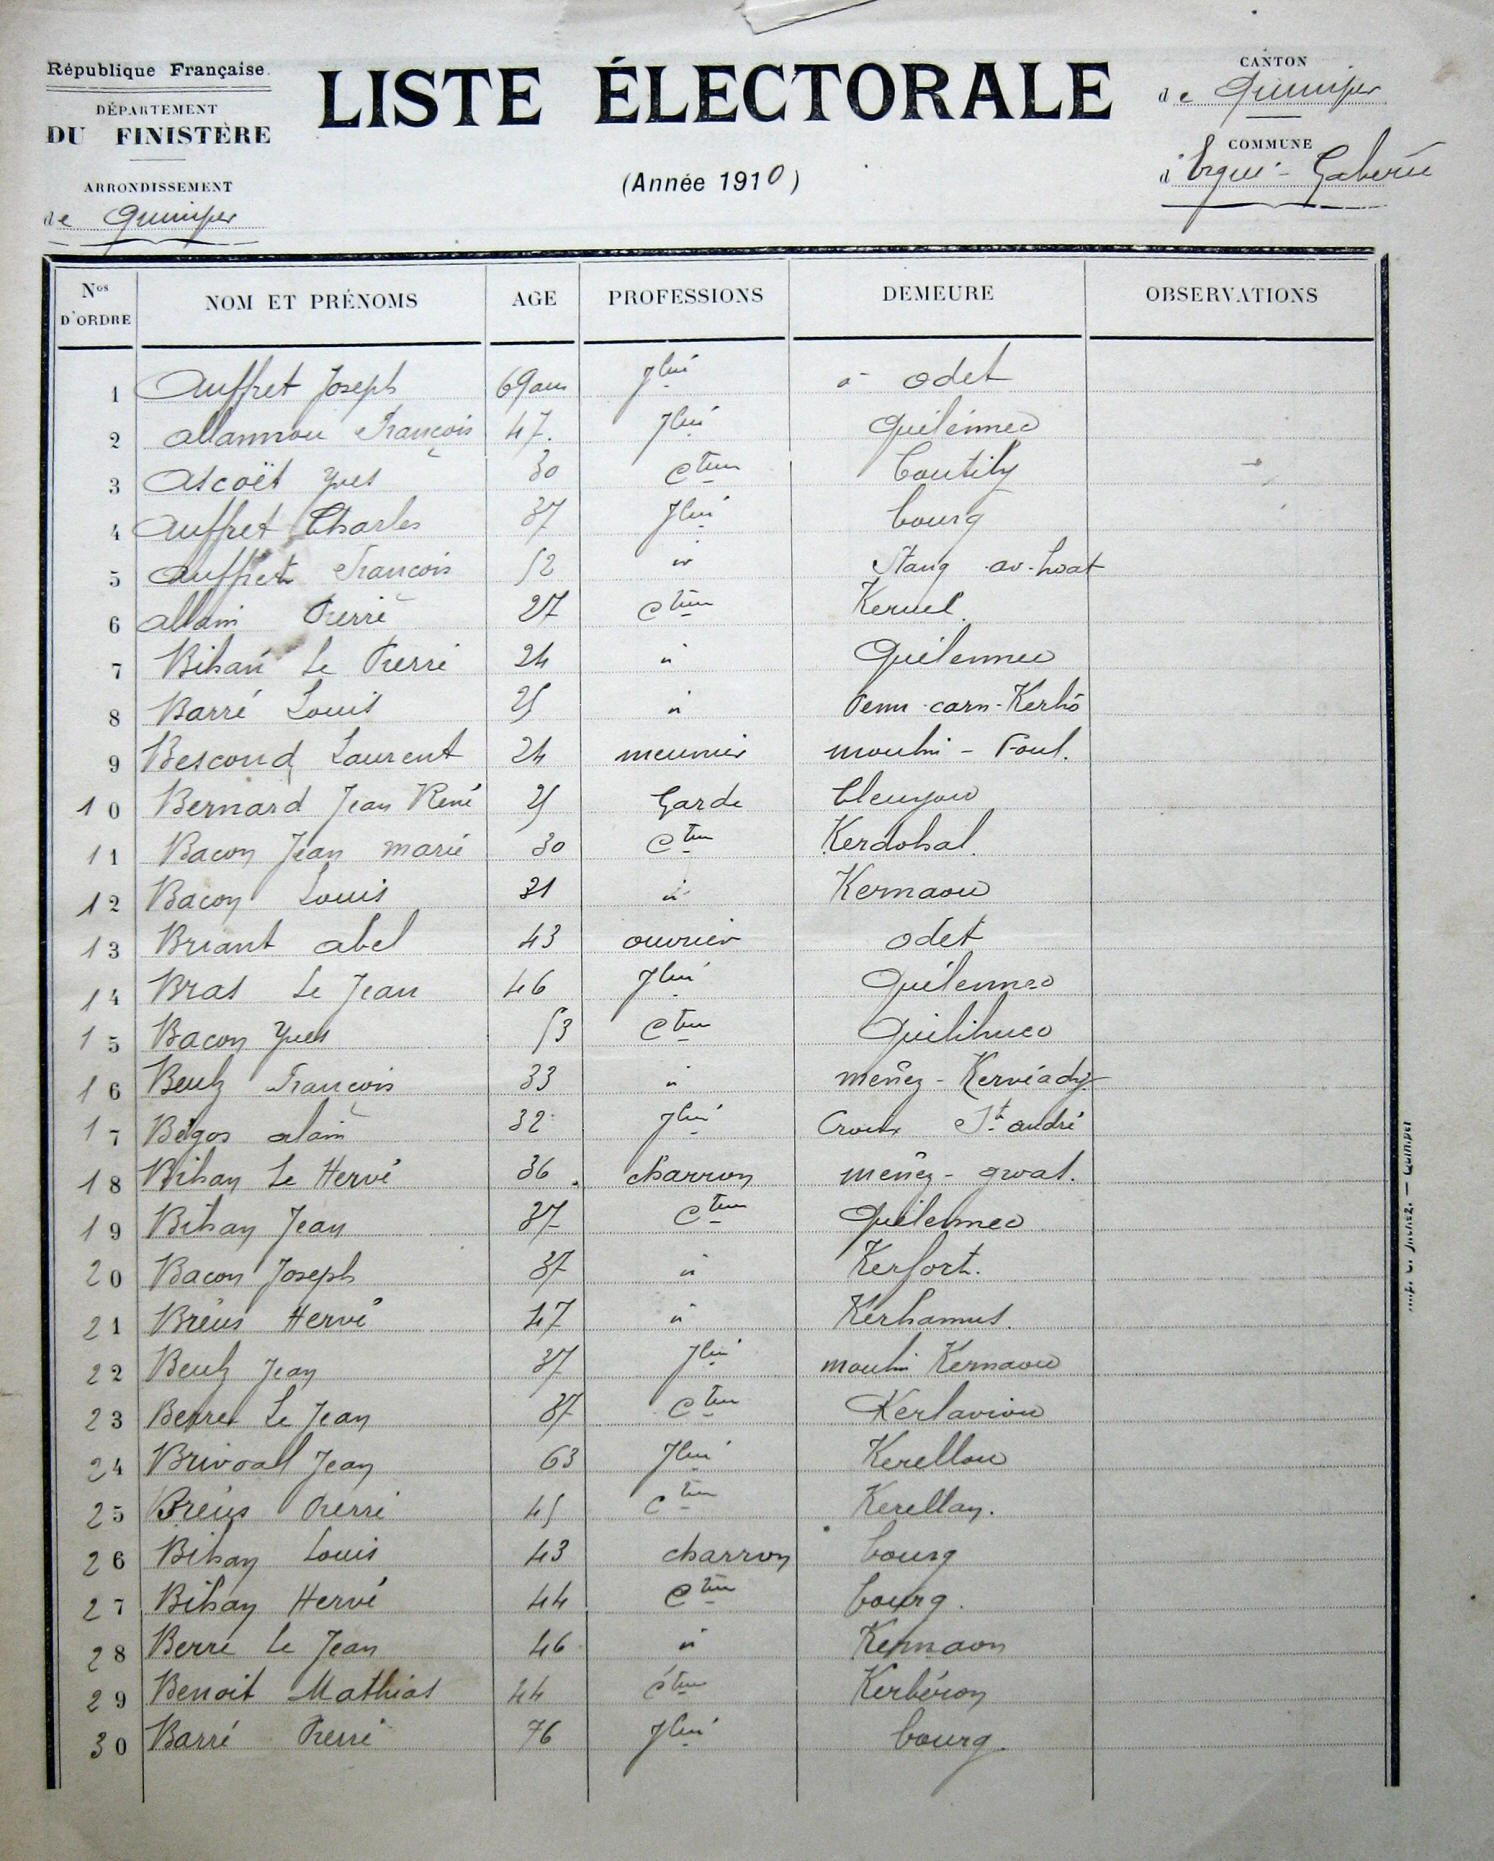 République Française
DÉPARTEMENT
DU FINISTÈRE
ARRONDISSEMENT
de Quimper
LISTE ÉLECTORALE
(Année 1910)
CANTON
de Quimper
COMMUNE
d'Ergué-Gabéric
Nos D'ORDRE NOM ET PRÉNOMS AGE PROFESSIONS DEMEURE OBSERVATIONS
1 Auffret Joseph 69 ans Jlier à Odet
2 Allannou François 47. Jlier Quélénnec
3 Ascoët Yves 30 Cteur Coutily
4 Auffret Charles 37 Jlier bourg
5 Auffret François 52 id Stang-ar-hoat
6 Allain Pierre 27 Cteur Keruel
7 Bihan Le Pierre 24 id Quélennec
8 Barré Louis 25 id Penn-carn-Kerho
9 Bescond Laurent 24 meunier moulin-Foul.
10 Bernard Jean René 25 Garde Cleuyou
11 Bacon Jean marie 30 Cteur Kerdohal.
12 Bacon Louis 31 id Kernaou
13 Briant abel 43 ouvrier odet
14 Bras Le Jean 46 Jlier Quélennec
15 Bacon Yves 53 Cteur Quilihuec
16 Beulz François 33 id menez-Kervéady
17 Bégos alain 32 Jlier Croix St andré
18 Bihan Le Hervé 36 charron menez-groas.
19 Bihan Jean 37 Cteur Quélennec
20 Bacon Joseph 37 id Kerfort.
21 Bréus Hervé 47 id Kerhamus.
22 Beulz Jean 37 Jlier moulin Kernaou
23 Berre Le Jean 37 Cteur Kerlaviou
24 Brivoal Jean 63 Jlier Kerellou
25 Bréus Pierre 45 Cteur Kerellan.
26 Bihan Louis 43 charron bourg
27 Bihan Hervé 44 Cteur bourg.
28 Berre Le Jean 46 id Kernaon
29 Benoit Mathias 44 Cteur Kerbéron
30 Barré Pierre 76 Jlier bourg.